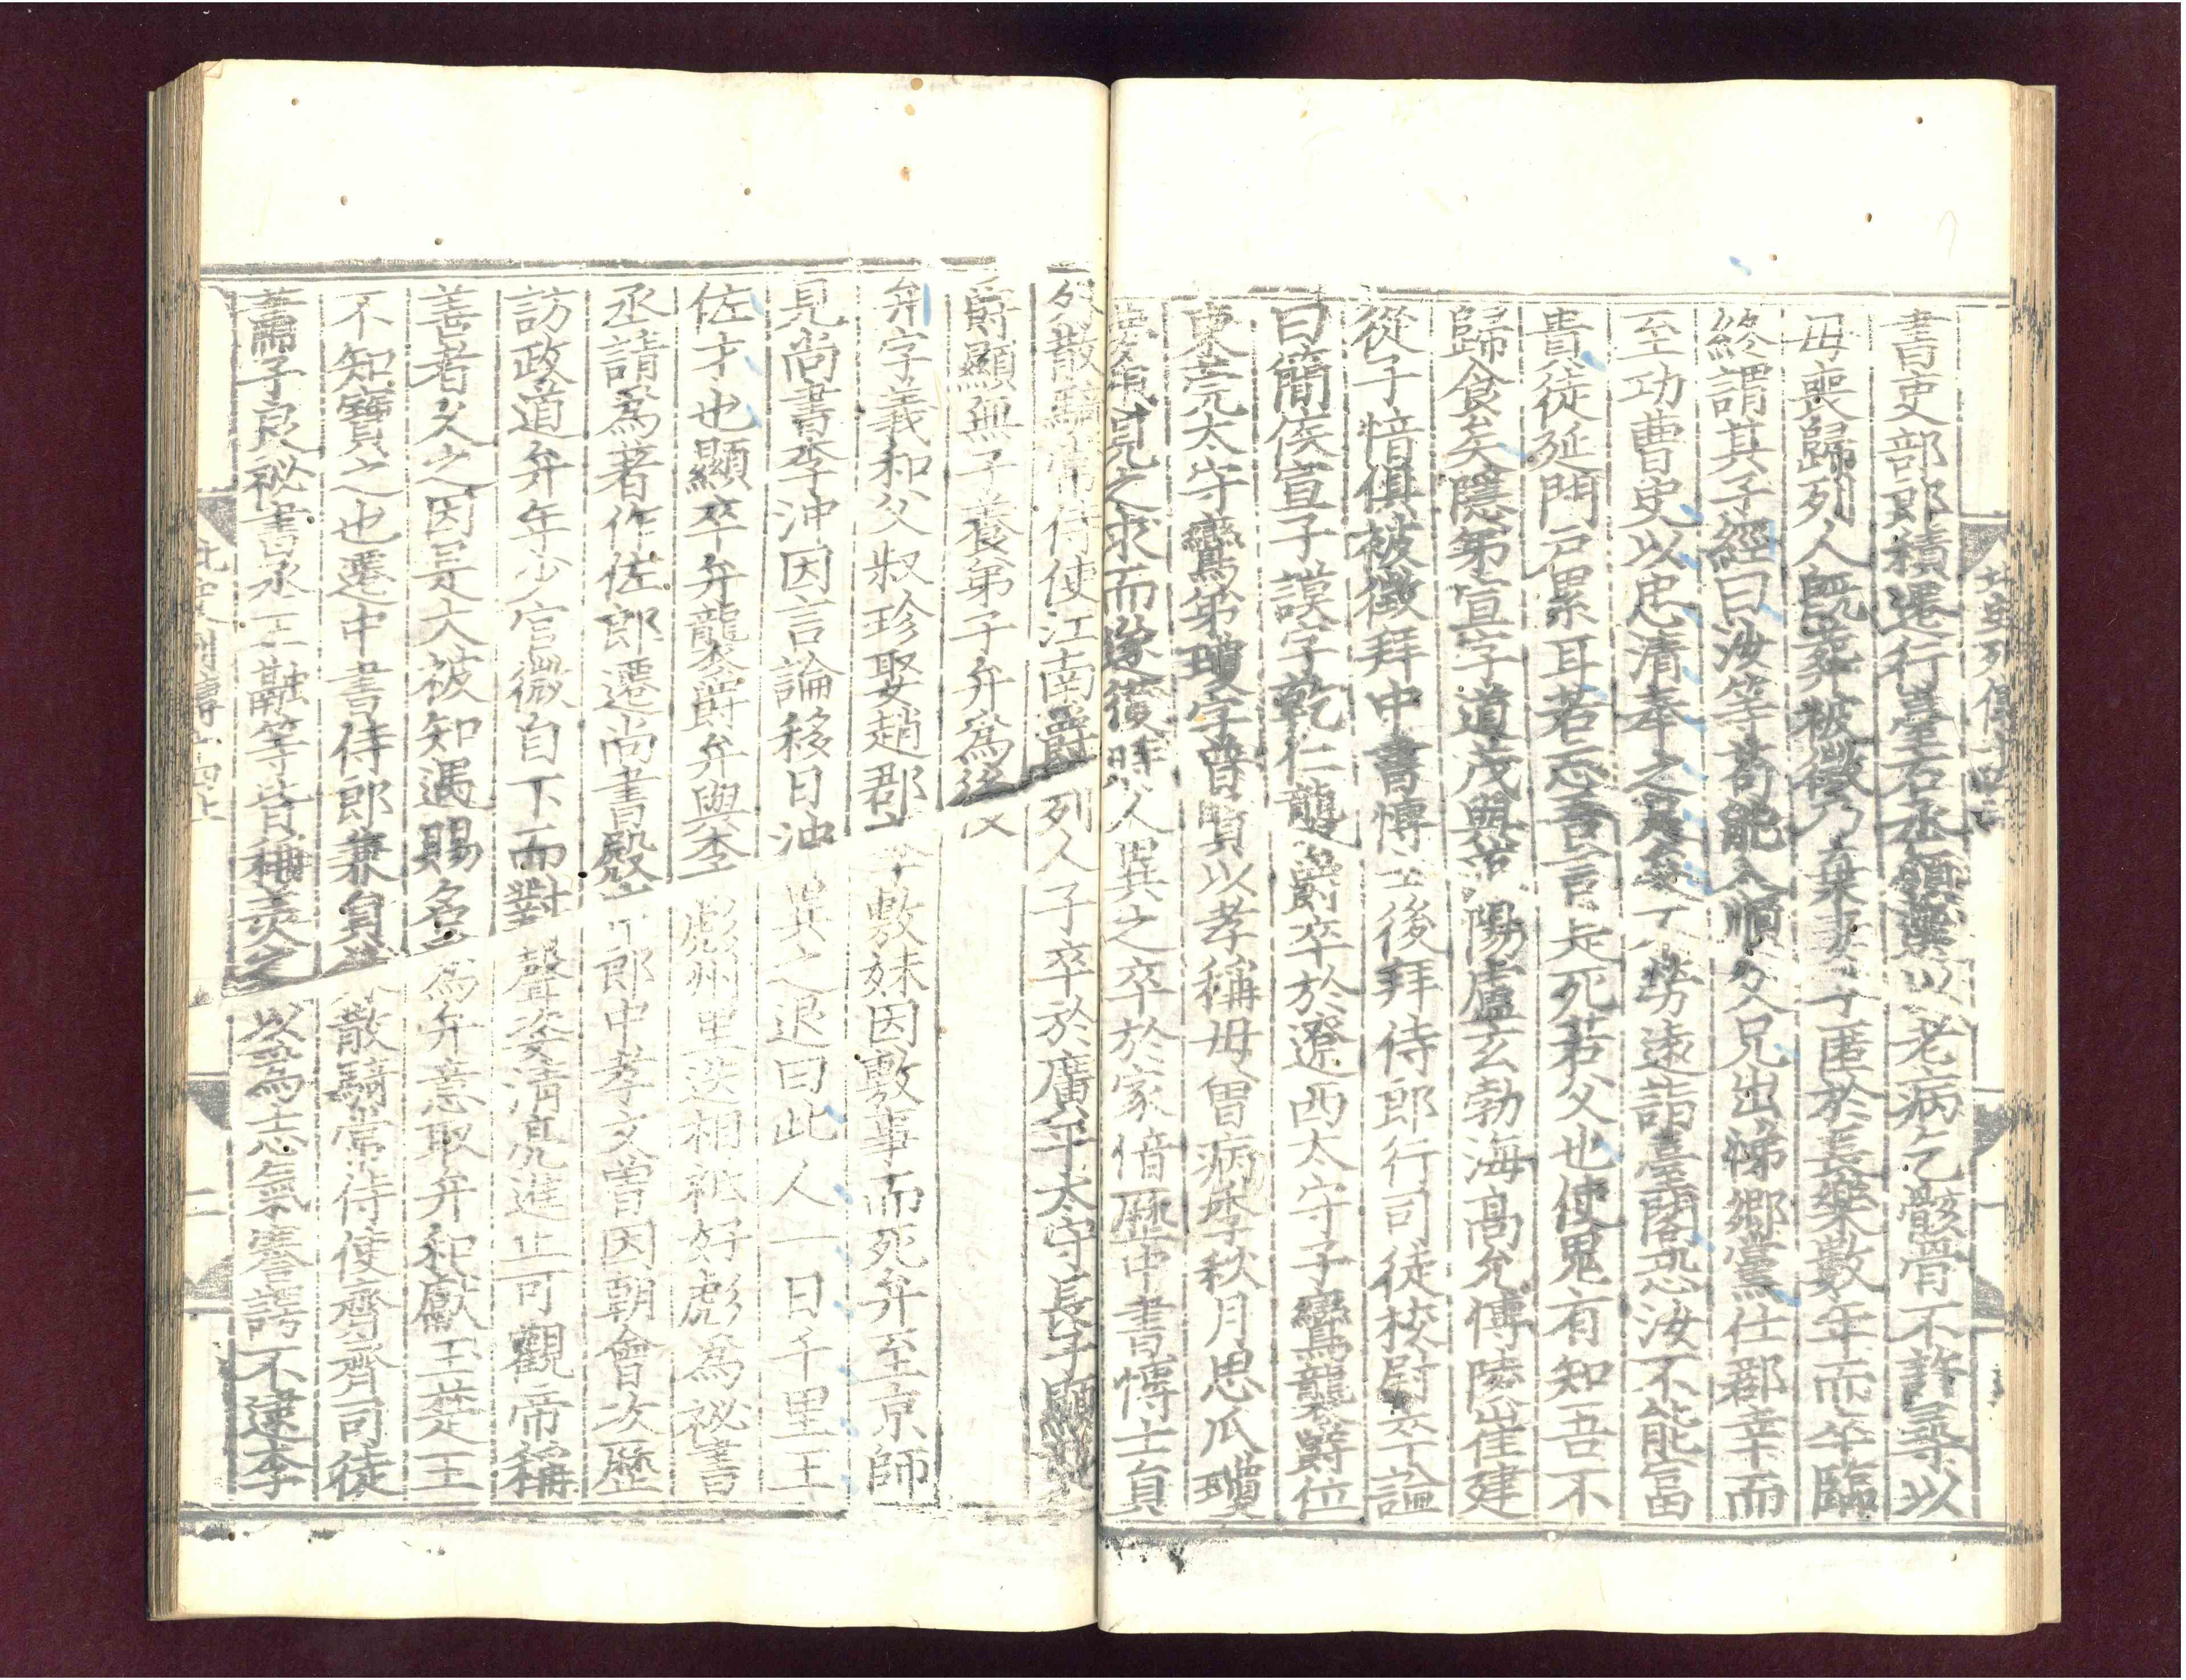 書吏部郎積遷行臺右丞領選以老病乞骸骨不許尋以
母喪歸列人旣葬被徵乃棄妻子匿於長樂數年而卒臨
終謂其子經曰汝等苟能入順父兄出悌鄉黨仕郡幸而
至功曹史以忠清奉之足矣不勞遠詣臺閣恐汝不能富
貴徒延門戶累耳若忘吾言是死若父也使鬼有知吾不
歸食矣隱弟宣字道茂與范陽盧玄勃海高允博陵崔建
從子愔俱被徵拜中書博士後拜侍郎行司徒校尉卒謚
曰簡侯宣子謨字乾仁襲爵卒於遼西太守子鸞襲爵位
東莞太守鸞弟瓊字普賢以孝稱母曾病季秋月思瓜瓊
夢想見之求而遂獲時人異之卒於家愔歷中書博士員
外散騎常侍使江南爵列人子卒於廣平太守長子顯襲
爵顯無子養弟子弁爲後
弁字義和父叔珍娶趙郡李敷妹因敷事而死弁至京師
見尚書李沖因言論移日沖異之退曰此人一日千里王
佐才也顯卒弁襲爵弁與李彪州里迭相祗好彪爲祕書
丞請爲著作佐郎遷尚書殿中郎中孝文曾因朝會次歷
訪政道弁年少官微自下而對聲姿清亮進止可觀帝稱
善者久之因是大被知遇賜名爲弁意取弁和獻玉楚王
不知寶之也遷中書侍郎兼員外散騎常侍使齊齊司徒
蕭子良祕書丞王融等皆稱美之以爲志氣謇諤不逮李
北史列傳十四上
二